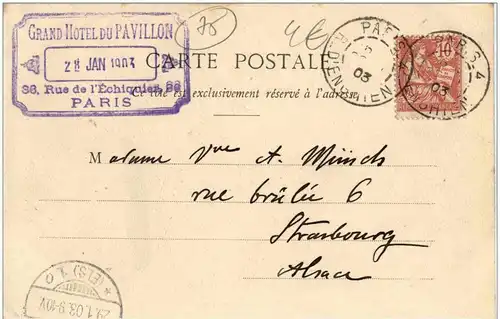 GRAND HOTEL DU PAVILLON
28 JAN 1903
36, Rue de l'Échiquier, 36
PARIS
75
CARTE POSTALE
Ce côté est exclusivement réservé à l'adresse
10
PARIS
R. D'ENGHIEN
03
03
Madame Vve A. Münch
rue brûlée 6
Strasbourg
Alsace
(ELS)
29.1.03.9-10V.